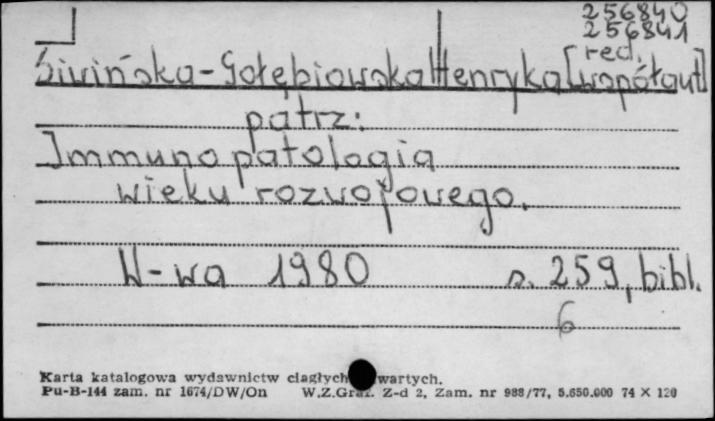 256840
256841
red.
Siwińska-Gołębiowska Henryka [współaut]
patrz:
Immunopatologia
wieku rozwojowego.
W-wa 1980 s. 259, bibl.
6
Karta katalogowa wydawnictw ciągłych wartych.
Pu-B-144 zam. nr 1674/DW/On W.Z.Graf. Z-d 2, Zam. nr 988/77, 5.650.000 74 X 120